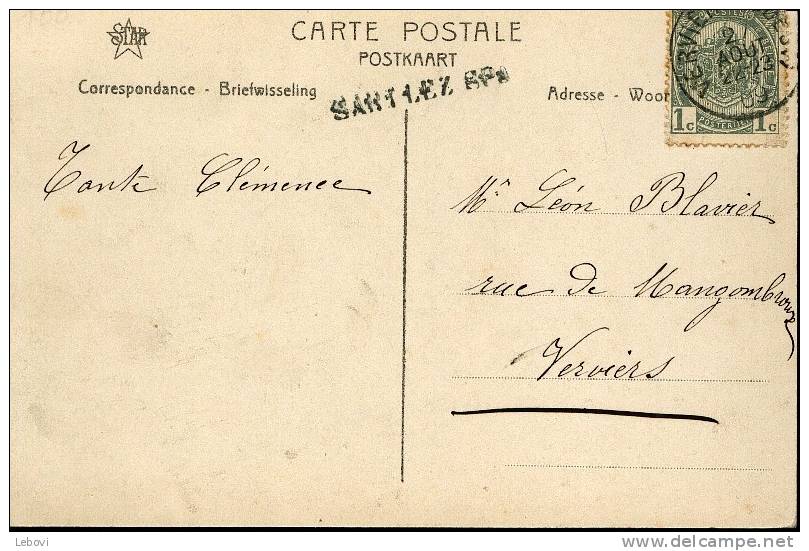 STAR
CARTE POSTALE
POSTKAART
Correspondance - Briefwisseling
SART LEZ SPA
Adresse - Woon
AOUT
22-23
09
1c 1c
Tante Clémence
Mr Léon Blavier
rue de Mangombroux
Verviers
Lebovi
delcampe.net